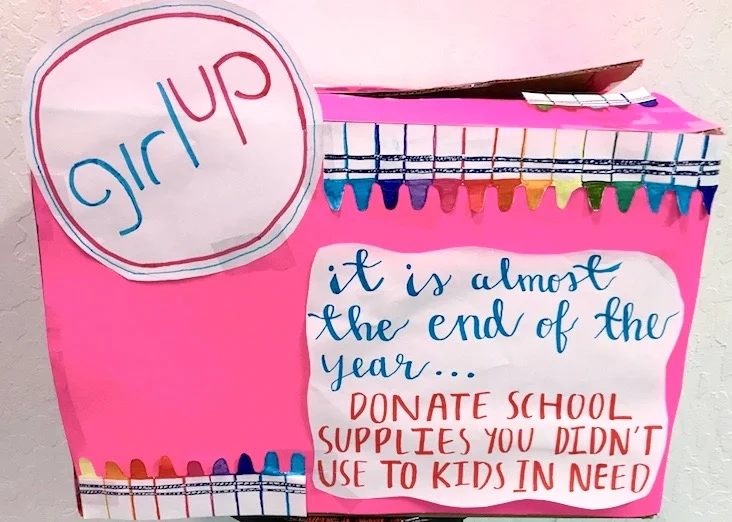 girl up
it is almost
the end of the
year...
DONATE SCHOOL
SUPPLIES YOU DIDN'T
USE TO KIDS IN NEED